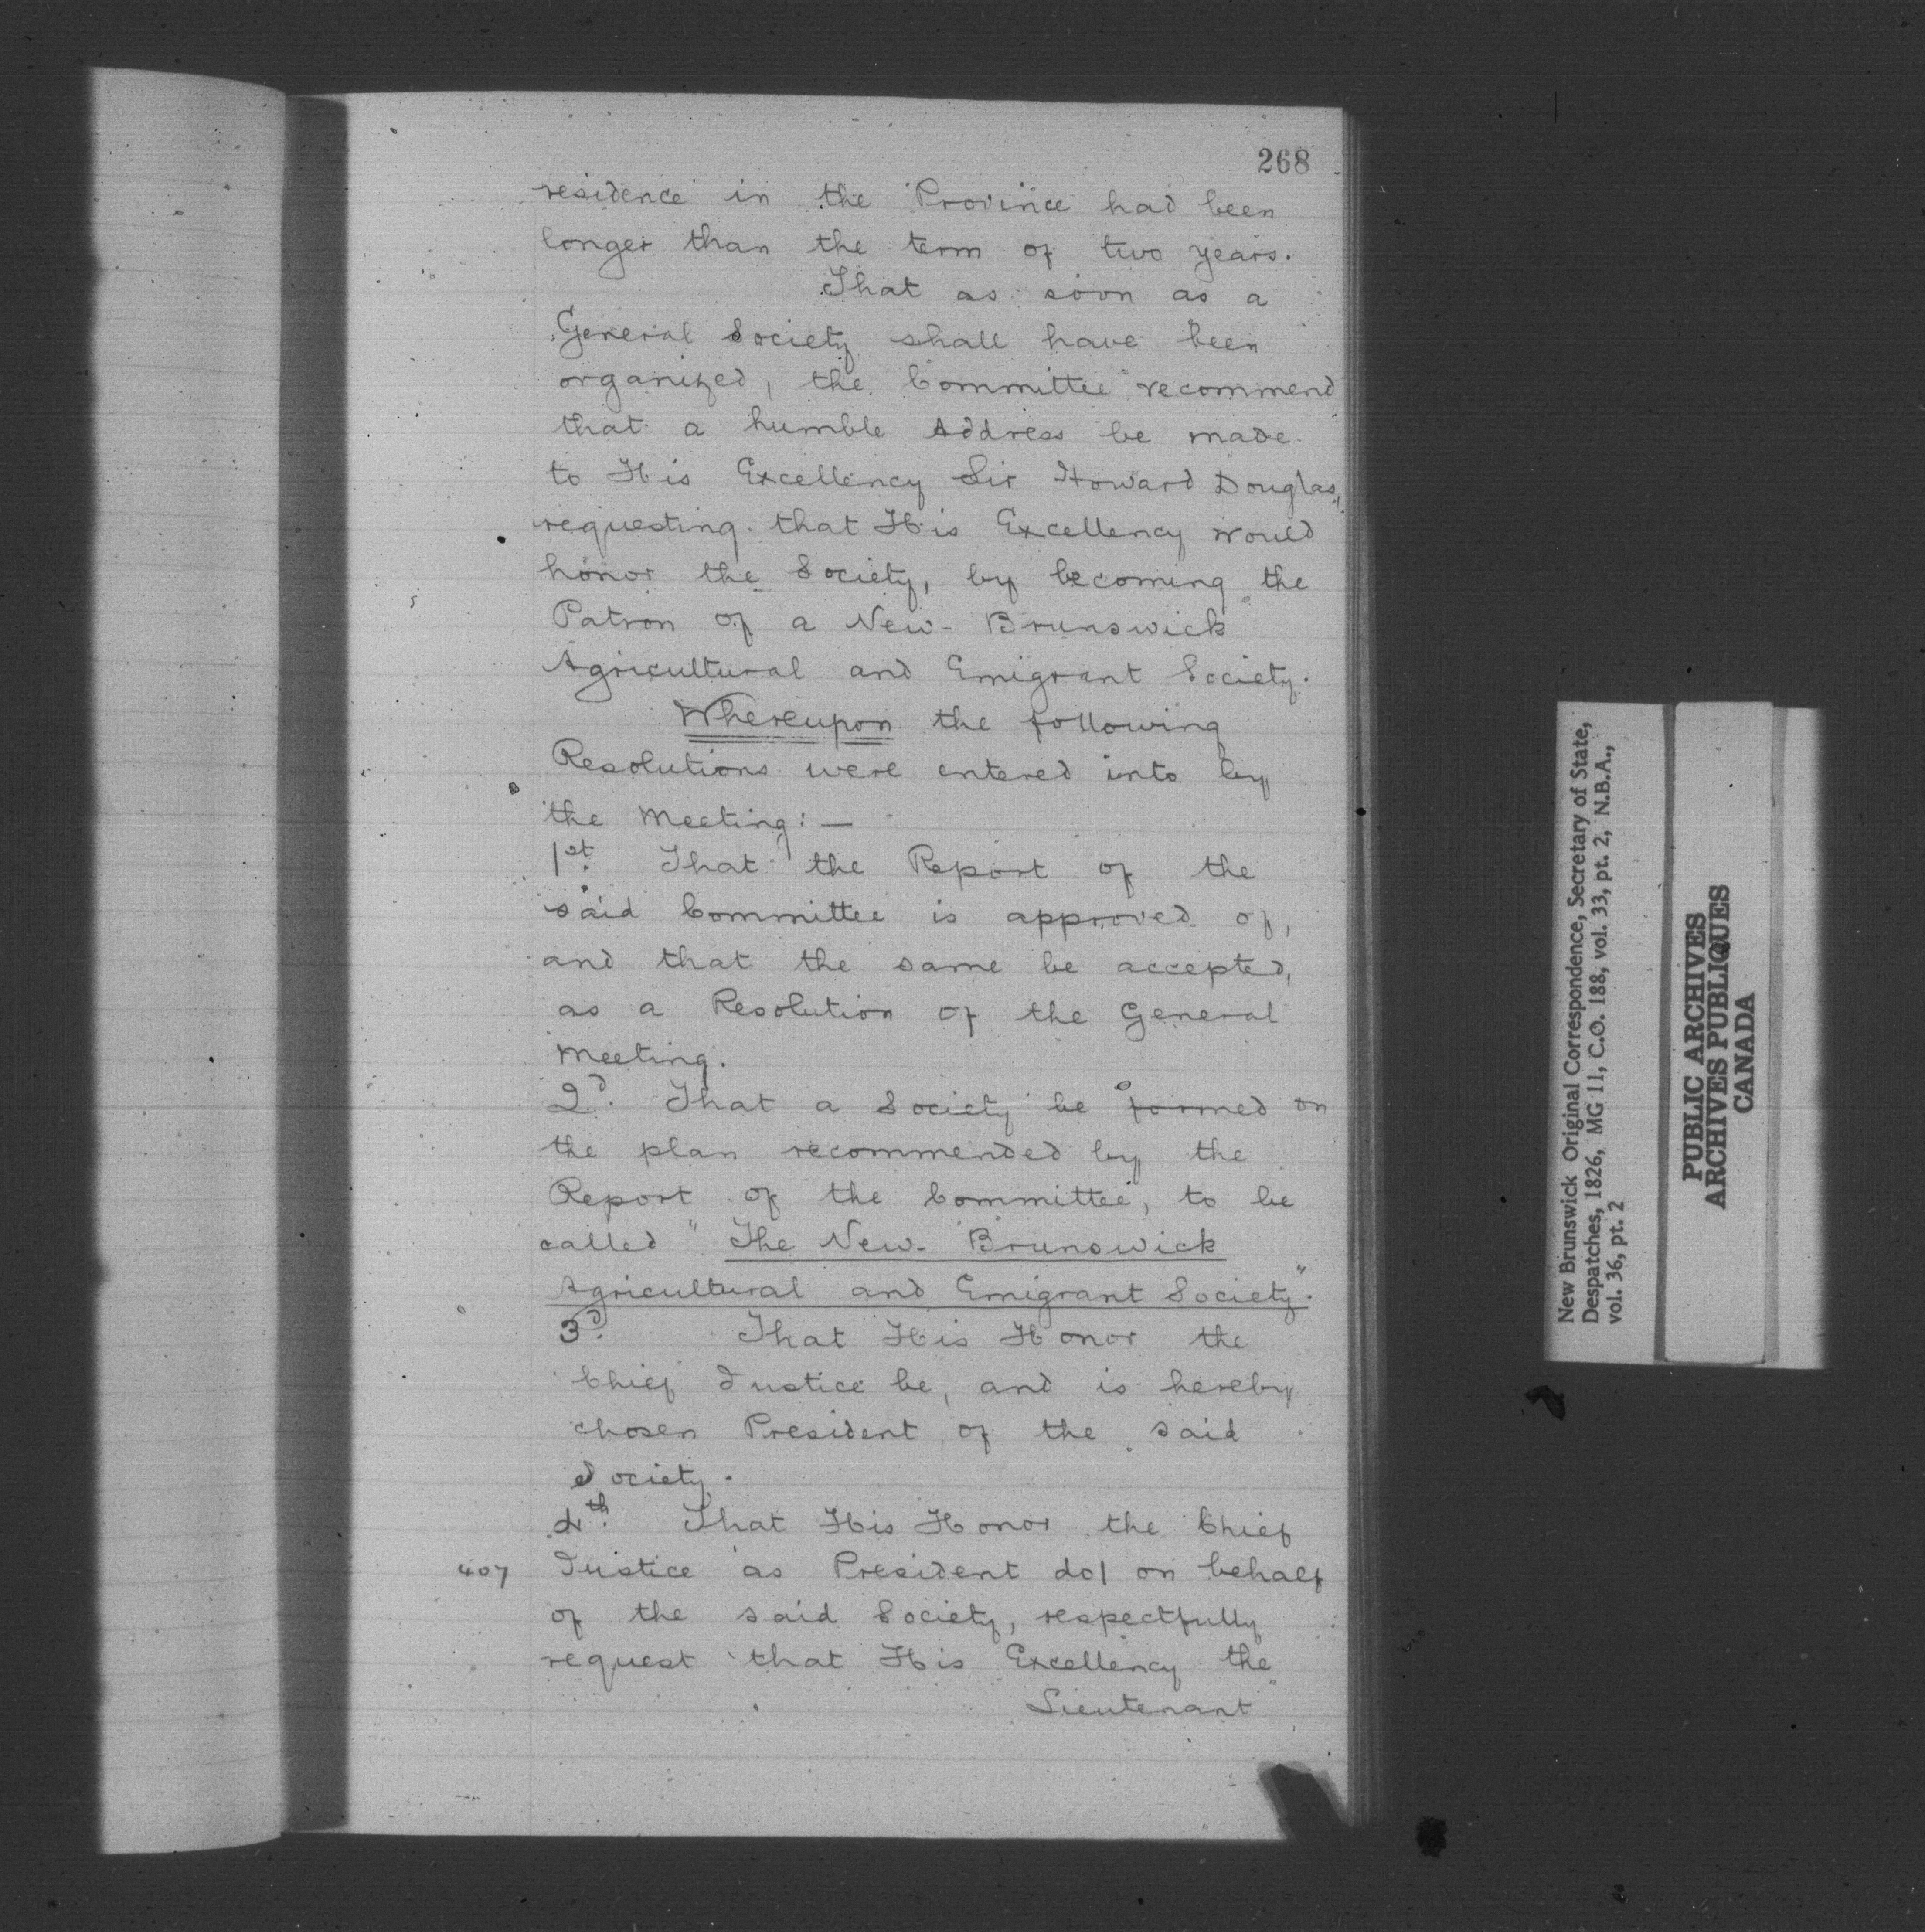 268
residence in the Province had been
longer than the term of two years.
That as soon as a
General Society shall have been
organized, the Committee recommend
that a humble Address be made
to His Excellency Sir Howard Douglas,
requesting that His Excellency would
honor the Society, by becoming the
Patron of a New-Brunswick
Agricultural and Emigrant Society.
Whereupon the following
Resolutions were entered into by
the Meeting:—
1st. That the Report of the
said Committee is approved of,
and that the same be accepted,
as a Resolution of the General
Meeting.
2d. That a Society be formed on
the plan recommended by the
Report of the Committee, to be
called "The New-Brunswick
Agricultural and Emigrant Society."
3d. That His Honor the
Chief Justice be, and is hereby
chosen President of the said
Society.
4th. That His Honor the Chief
407 Justice as President do| on behalf
of the said Society, respectfully
request that His Excellency the
Lieutenant
New Brunswick Original Correspondence, Secretary of State,
Despatches, 1826, MG 11, C.O. 188, vol. 33, pt. 2, N.B.A.,
vol. 36, pt. 2
PUBLIC ARCHIVES
ARCHIVES PUBLIQUES
CANADA